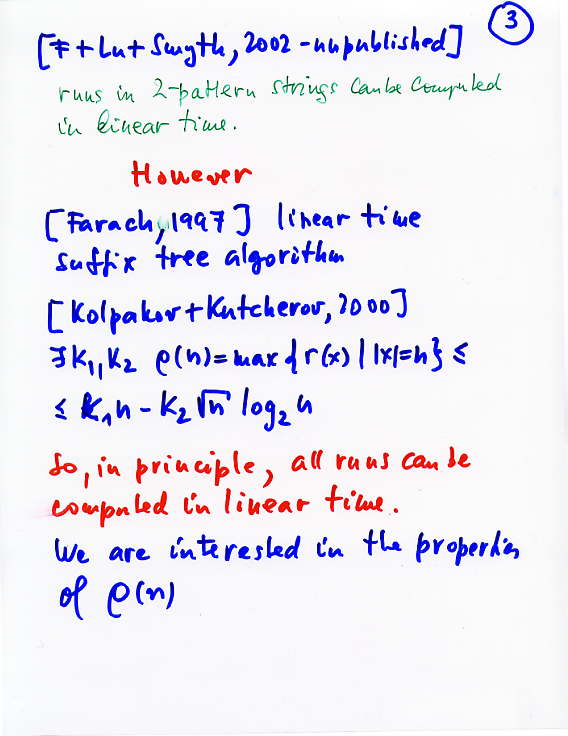 3
[F+Lu+Smyth, 2002 - unpublished]
runs in 2-pattern strings can be computed
in linear time.
However
[Farach, 1997] linear time
suffix tree algorithm
[Kolpakov+Kutcherov, 2000]
∃K₁,K₂ ρ(n)=max{r(x) | |x|=n} ≤
≤ K₁n - K₂√n log₂n
So, in principle, all runs can be
computed in linear time.
We are interested in the properties
of ρ(n)